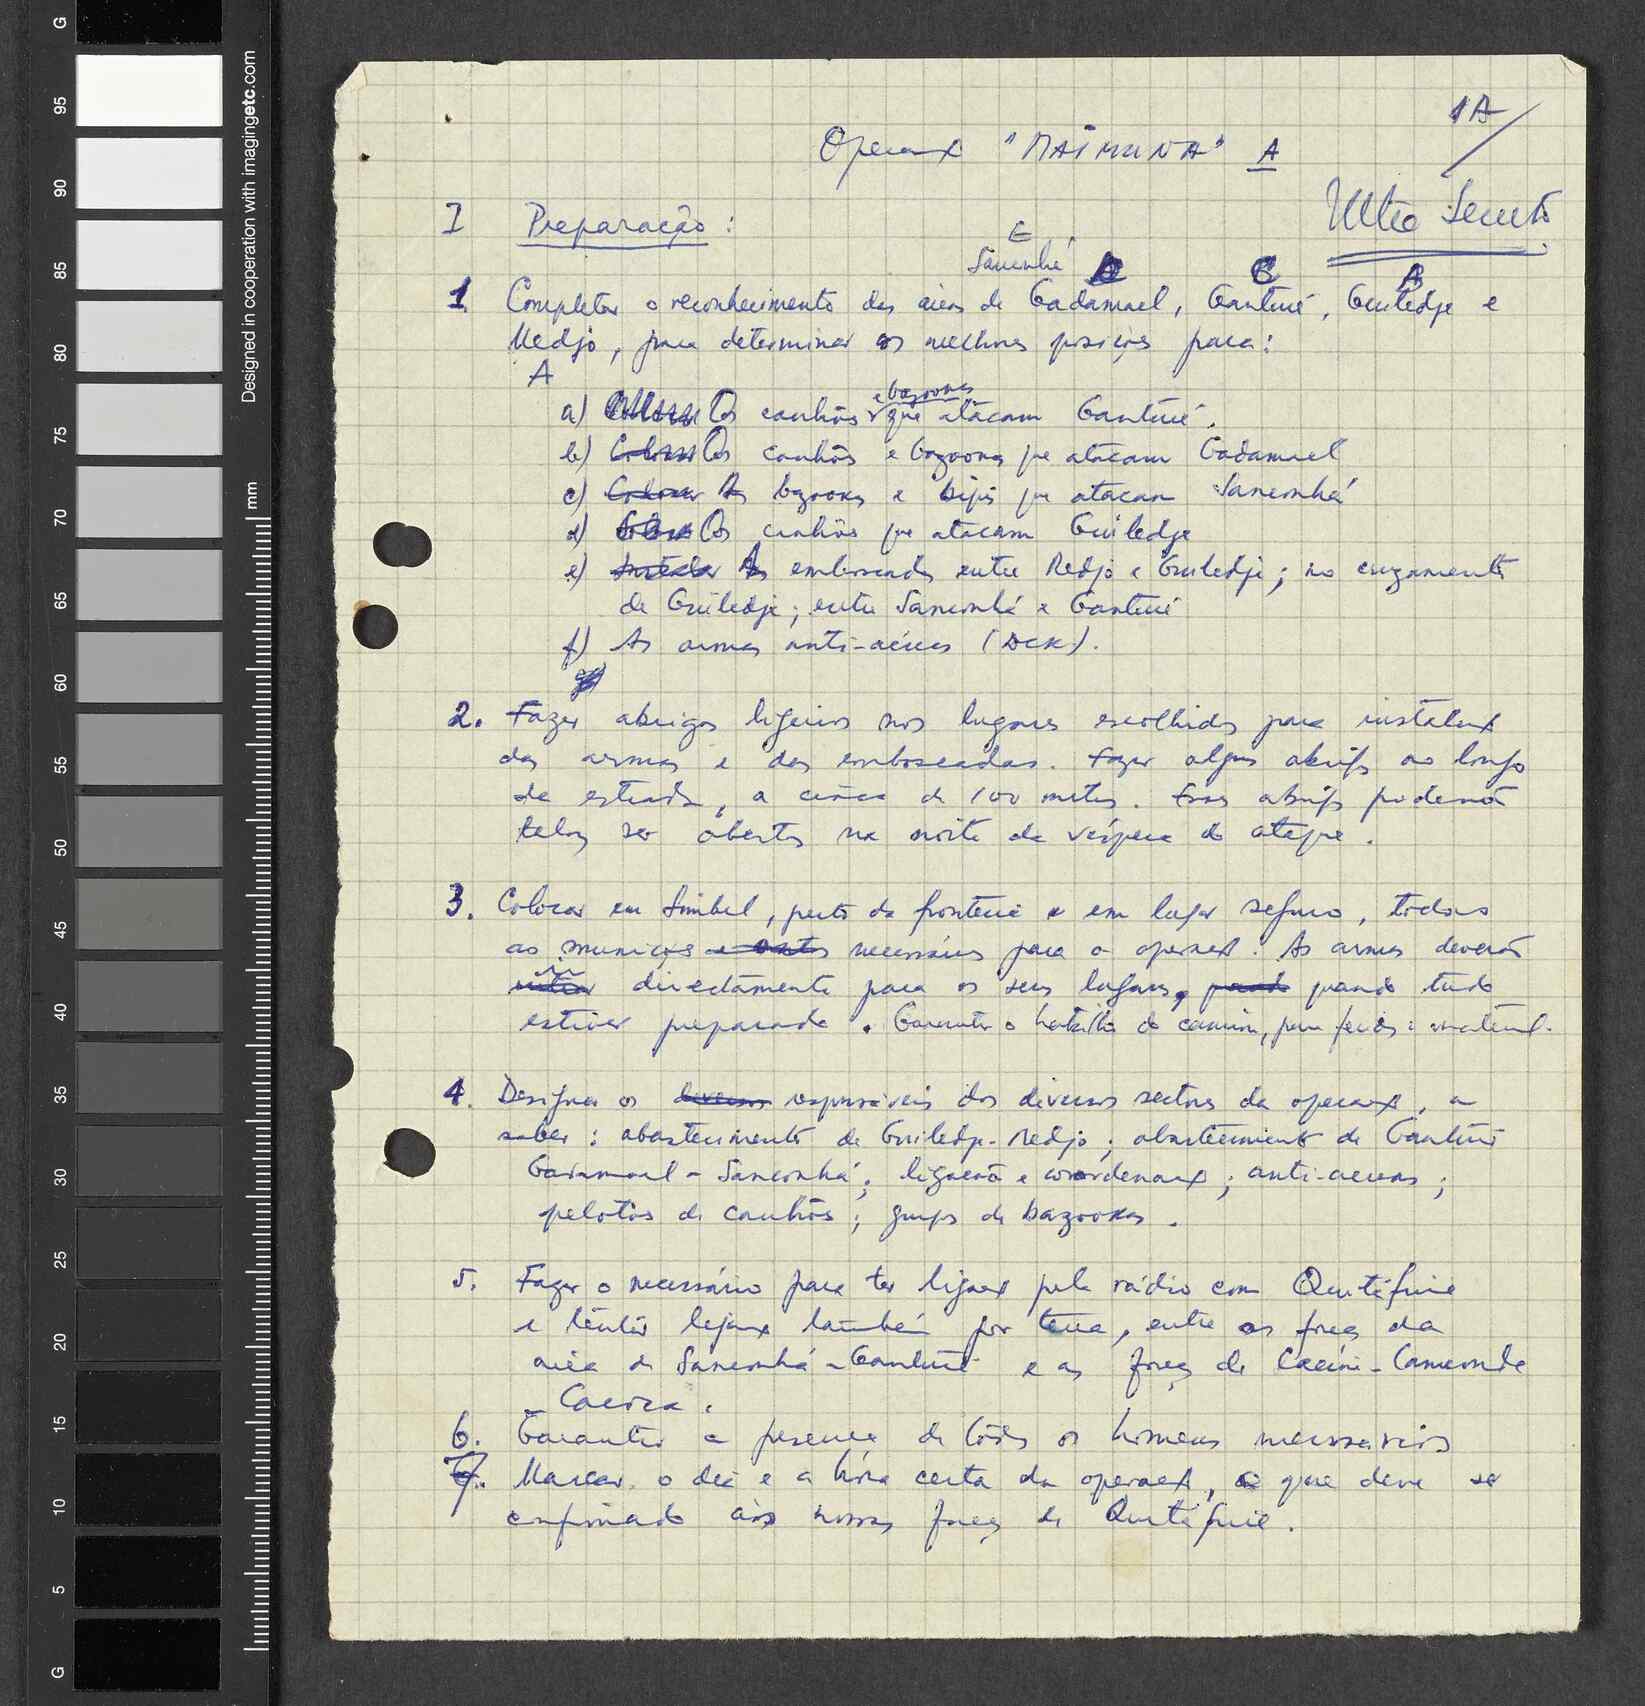 1A
Operação "MAIMUNA" A
Ultra Secreto
I Preparação:
E
Sanconhá C B
1. Completar o reconhecimento das áreas de Gadamael, Ganturé, Guiledje e
Medjo, para determinar as melhores posições para:
A
a) Os canhões e bazookas que atacam Ganturé.
b) Colocar Os canhões e bazookas que atacam Gadamael
c) Colocar As bazookas e bipés que atacam Sanconhá
d) Os canhões que atacam Guiledge
e) Instalar As emboscadas entre Medjo e Guiledje; no cruzamento
de Guiledje; entre Sanconhá e Ganturé
f) As armas anti-aéreas (DCK).
2. Fazer abrigos ligeiros nos lugares escolhidos para instalação
das armas e das emboscadas. Fazer alguns abrigos ao longo
da estrada, a cerca de 100 metros. Esses abrigos poderão
talvez ser abertos na noite da véspera do ataque.
3. Colocar em Simbel, perto da fronteira e em lugar seguro, todas
as munições necessárias para a operação. As armas deverão
ir directamente para os seus lugares, quando tudo
estiver preparado. Garantir o trabalho do camião, para feridos e material.
4. Designar os diversos responsáveis dos diversos sectores da operação, a
saber: abastecimento de Guiledje-Medjo; abastecimento de Ganturé
Gadamael-Sanconhá; ligação e coordenação; anti-aéreas;
pelotões de canhões; grupos de bazookas.
5. Fazer o necessário para ter ligação pela rádio com Quitáfine
e tentar ligação também por terra, entre as forças da
área de Sanconhá-Ganturé e as forças de Cacine-Cameconde
- Cacoca.
6. Garantir a presença de todos os homens necessários
7. Marcar o dia e a hora certa da operação, que deve ser
confirmado às nossas forças de Quitáfine.
Designed in cooperation with imagingetc.com
mm
G
95
90
85
80
75
70
65
60
55
50
45
40
35
30
25
20
15
10
5
G